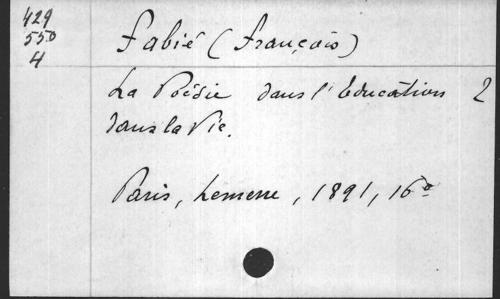 429
550
4
Fabié (François)
La Poésie dans l'Education 2
dans la Vie.
Paris, Lemerre, 1891, 16º